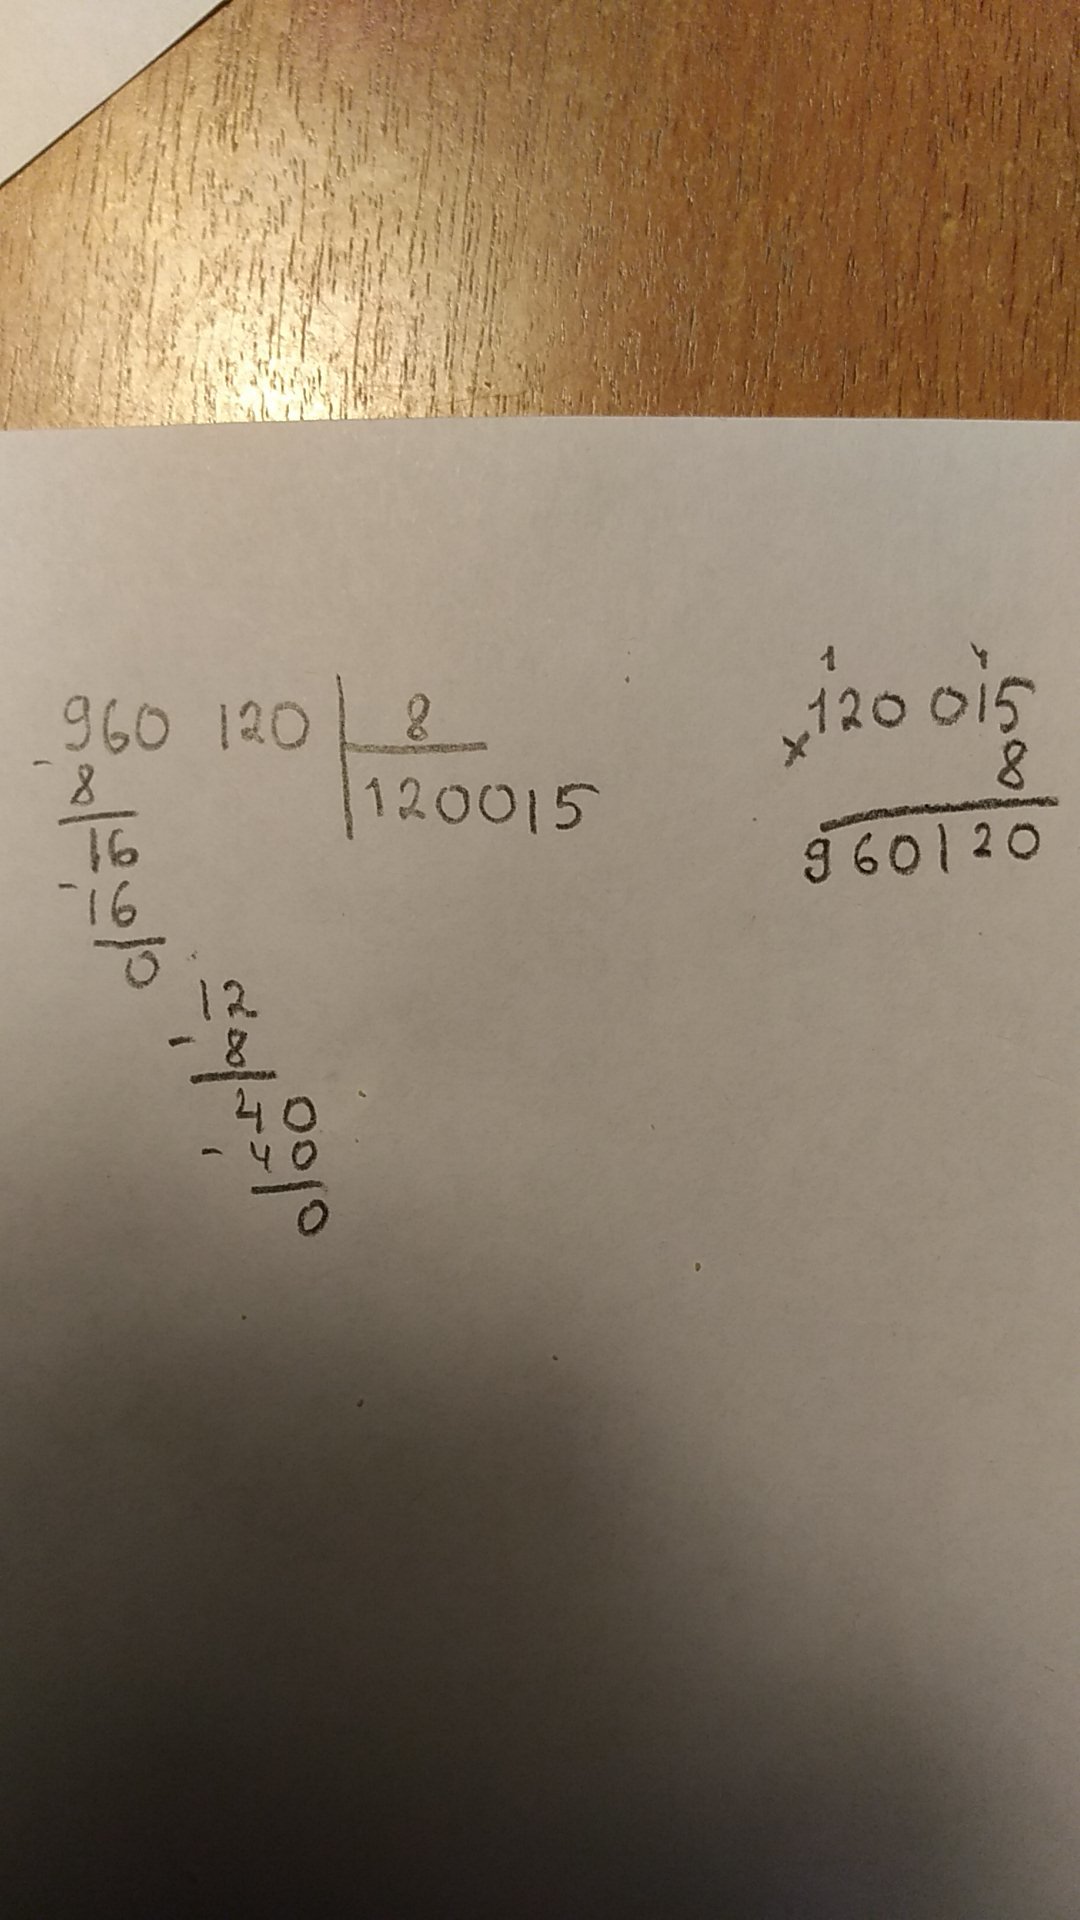 960 120 | 8
- 8
120015
16
- 16
0
12
- 8
40
- 40
0
1 4
120 015
x 8
960120